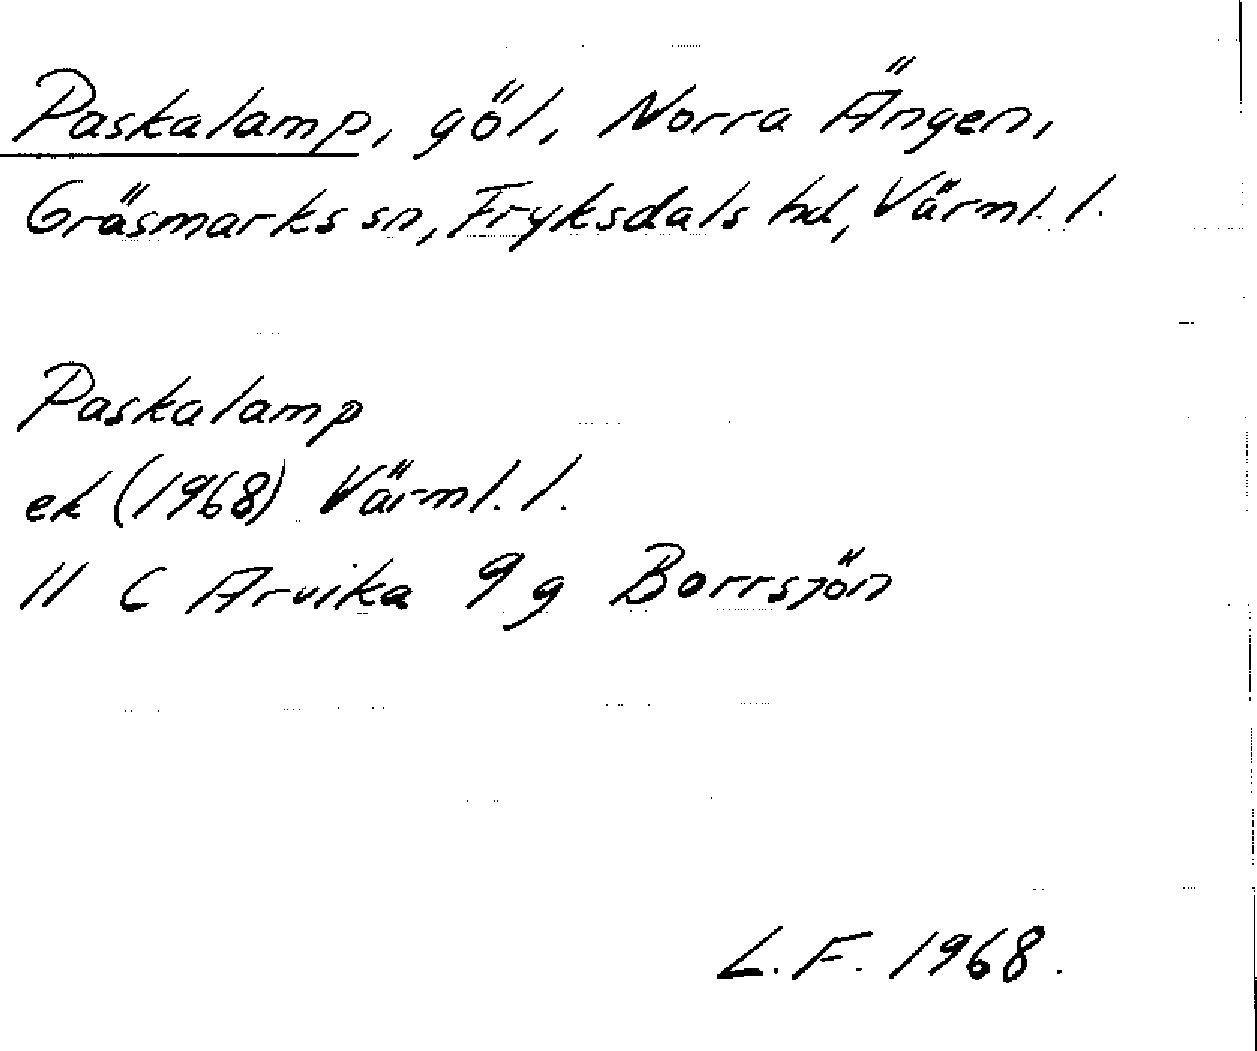 Paskalamp, göl, Norra Ängen,
Gräsmarks sn, Fryksdals hd, Värml. l.
Paskalamp
ek (1968) Värml. l.
11 C Arvika 9 g Borrsjön
L.F. 1968.